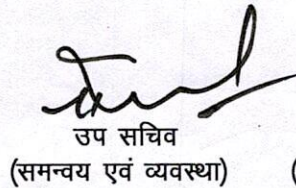 उप सचिव
(समन्वय एवं व्यवस्था) (